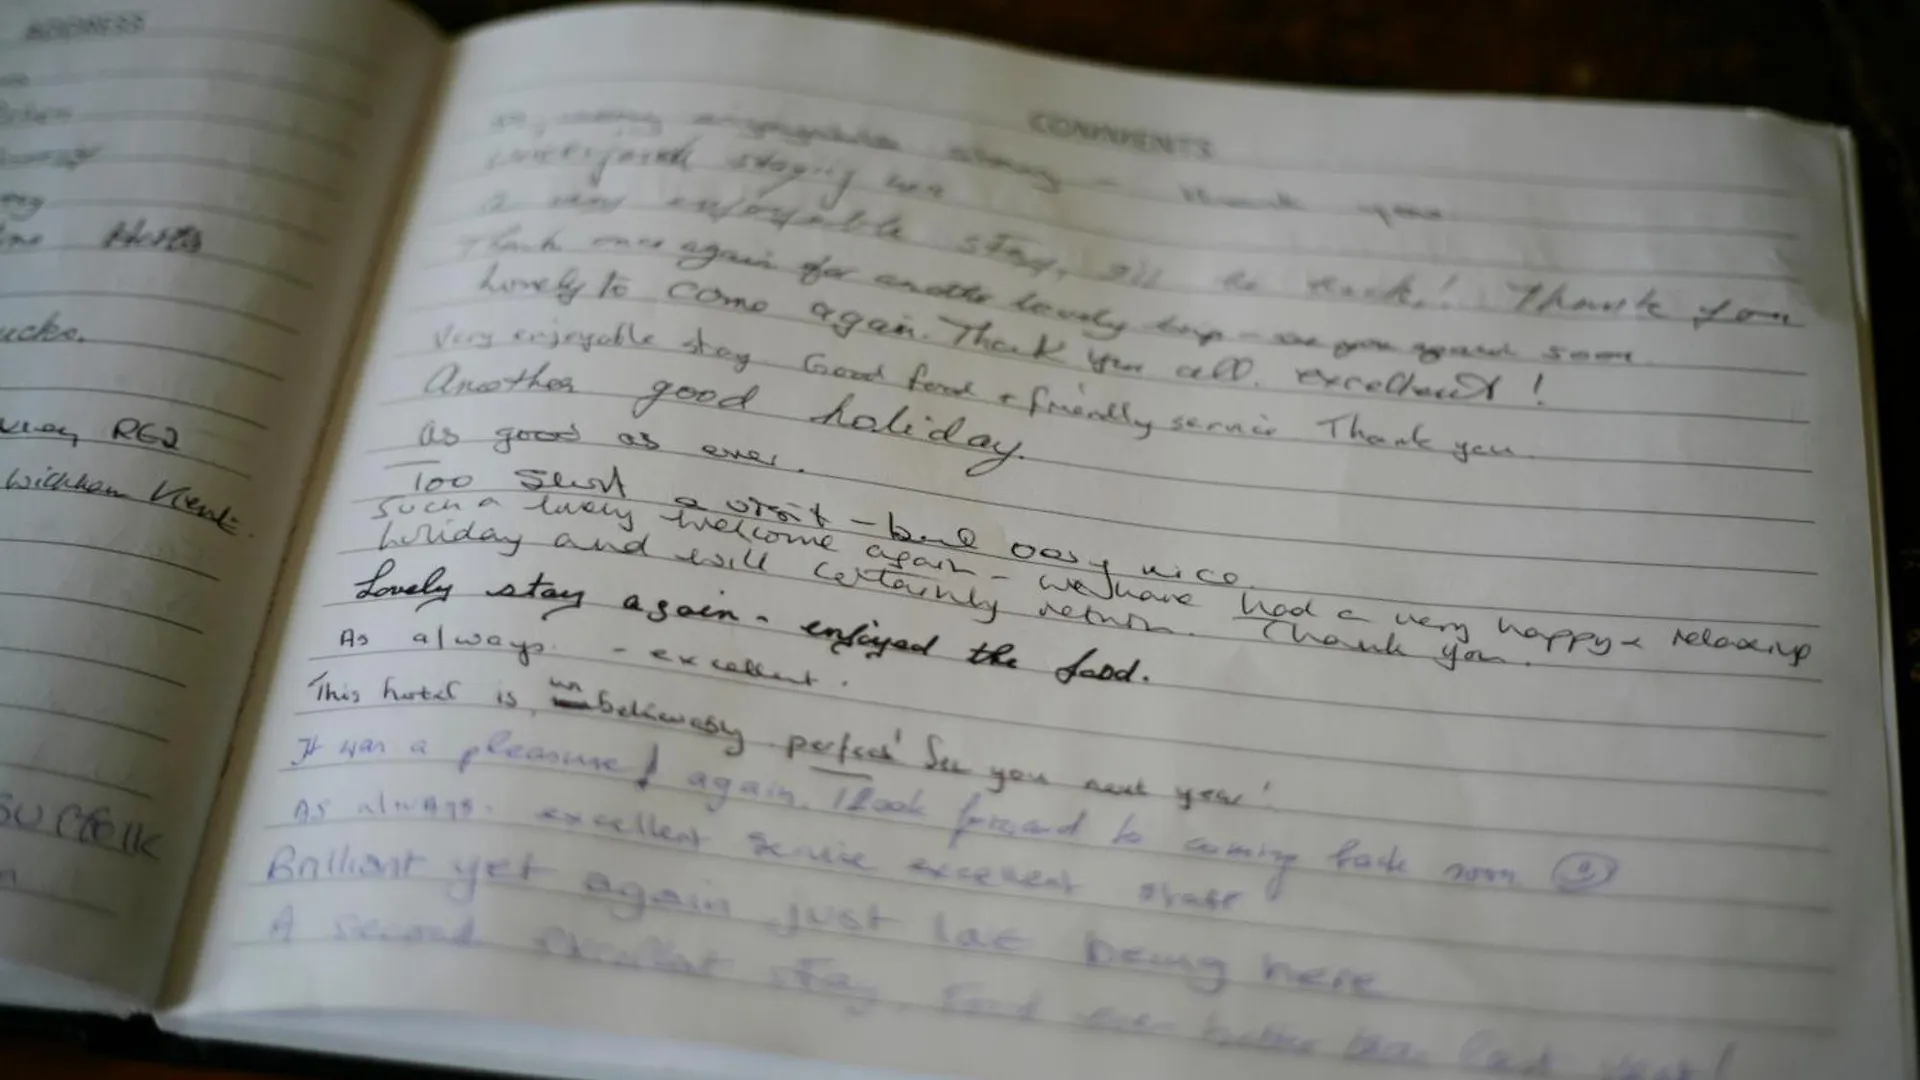 ADDRESS
Herts
ucks.
RG2
Wickham Kent.
Suffolk
COMMENTS
enjoyable stay - thank you
staying
a very enjoyable stay, will be back! Thank you
Thank once again for another lovely trip - see you again soon
Lovely to come again. Thank you all. excellent!
Very enjoyable stay Good food + friendly service Thank you
Another good holiday.
as good as ever.
Too short a visit - but very nice
Such a lovely welcome again - we have had a very happy & relaxing
holiday and will certainly return. Thank you.
Lovely stay again - enjoyed the food.
As always - excellent.
This hotel is unbelievably perfect! See you next year!
It was a pleasure again. I look forward to coming back soon
As always. excellent service excellent
Brilliant yet again just being here
A second excellent stay. Food even better than last year!